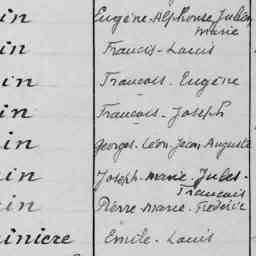 in Eugène-Alphonse Julien
Marie
in Francis-Louis
in Francois-Eugène
in François-Joseph
in Georges-Léon Jean Auguste
in Joseph-Marie-Jules-
Francois
in Pierre-Marie-Frédéric
iniere Emile-Louis